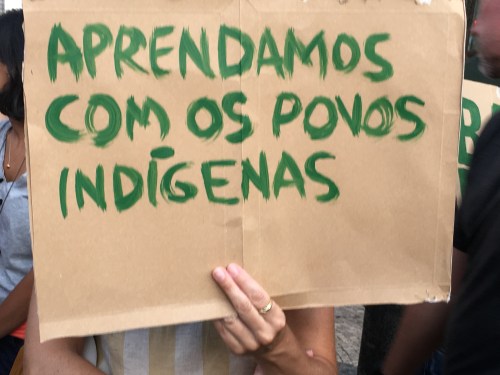 APRENDAMOS
COM OS POVOS
INDÍGENAS